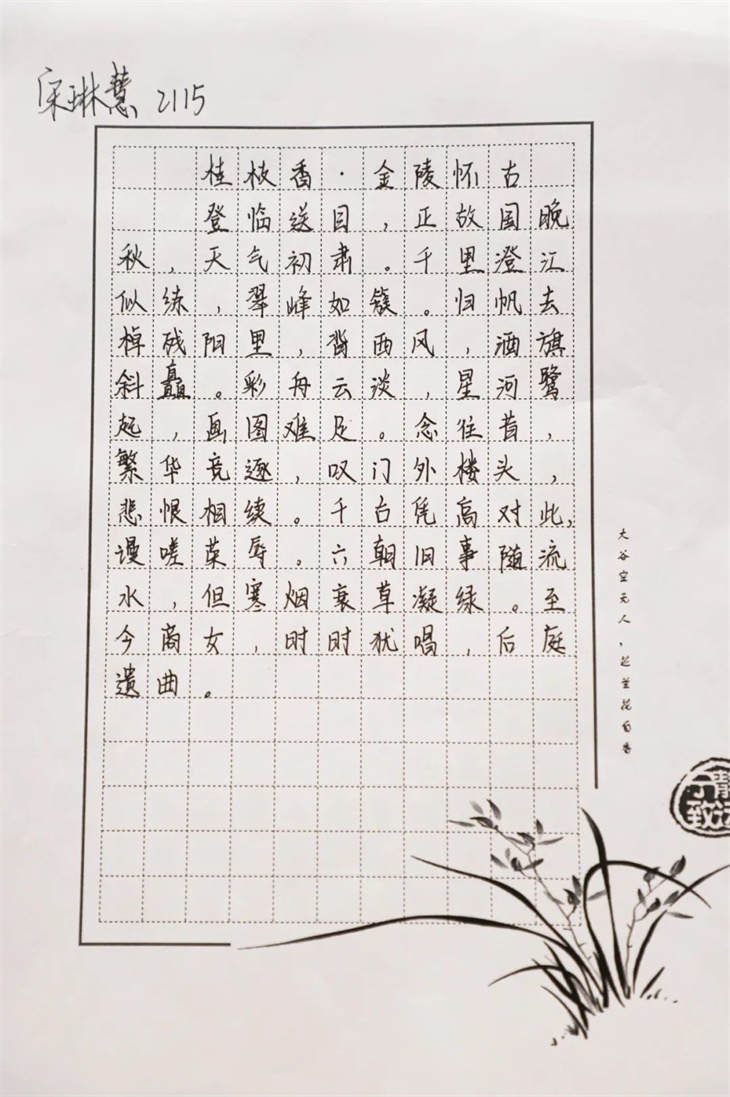 宋琳慧 2115
桂枝香·金陵怀古
登临送目，正故国晚
秋，天气初肃。千里澄江
似练，翠峰如簇。归帆去
棹残阳里，背西风，酒旗
斜矗。彩舟云淡，星河鹭
起，画图难足。念往昔，
繁华竞逐，叹门外楼头，
悲恨相续。千古凭高对此，
谩嗟荣辱。六朝旧事随流
水，但寒烟衰草凝绿。至
今商女，时时犹唱，后庭
遗曲。
大谷空无人，芝兰花自香
宁静致远